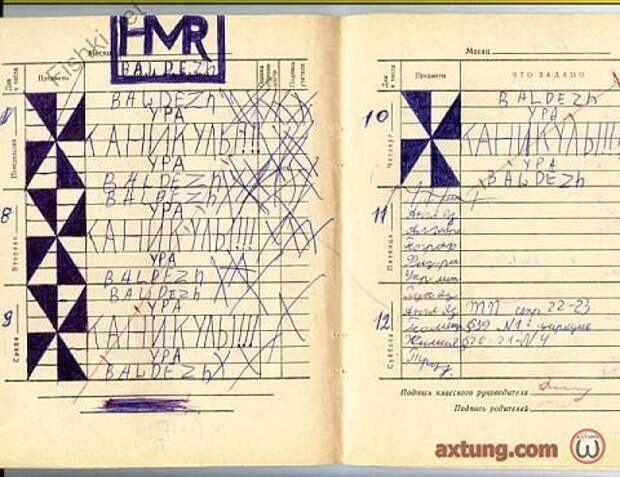 Fishki.net
HMR
BALDEZH
Месяц
Дни и числа
Предметы
Подпись учителя
7
Понедельник
BALDEZh
УРА
КАНИКУЛЫ!!!
УРА
BALDEZh
8
Вторник
BALDEZh
УРА
КАНИКУЛЫ!!!!
УРА
BALDEZh
9
Среда
BALDEZh
УРА
КАНИКУЛЫ!!!!
УРА
BALDEZh
Месяц
Дни и числа
Предметы
ЧТО ЗАДАНО
10
Четверг
BALDEZh
УРА
КАНИКУЛЫ!!!!
УРА
BALDEZh
11
Пятница
Англ яз
Алгебра
Географ
Физ-ра
Укр лит
12
Суббота
Русс яз
Англ яз ТП стр 22-23
§39 №1
Химия §20-21-N4
Труд
Подпись классного руководителя
Подпись родителей
axtung.com